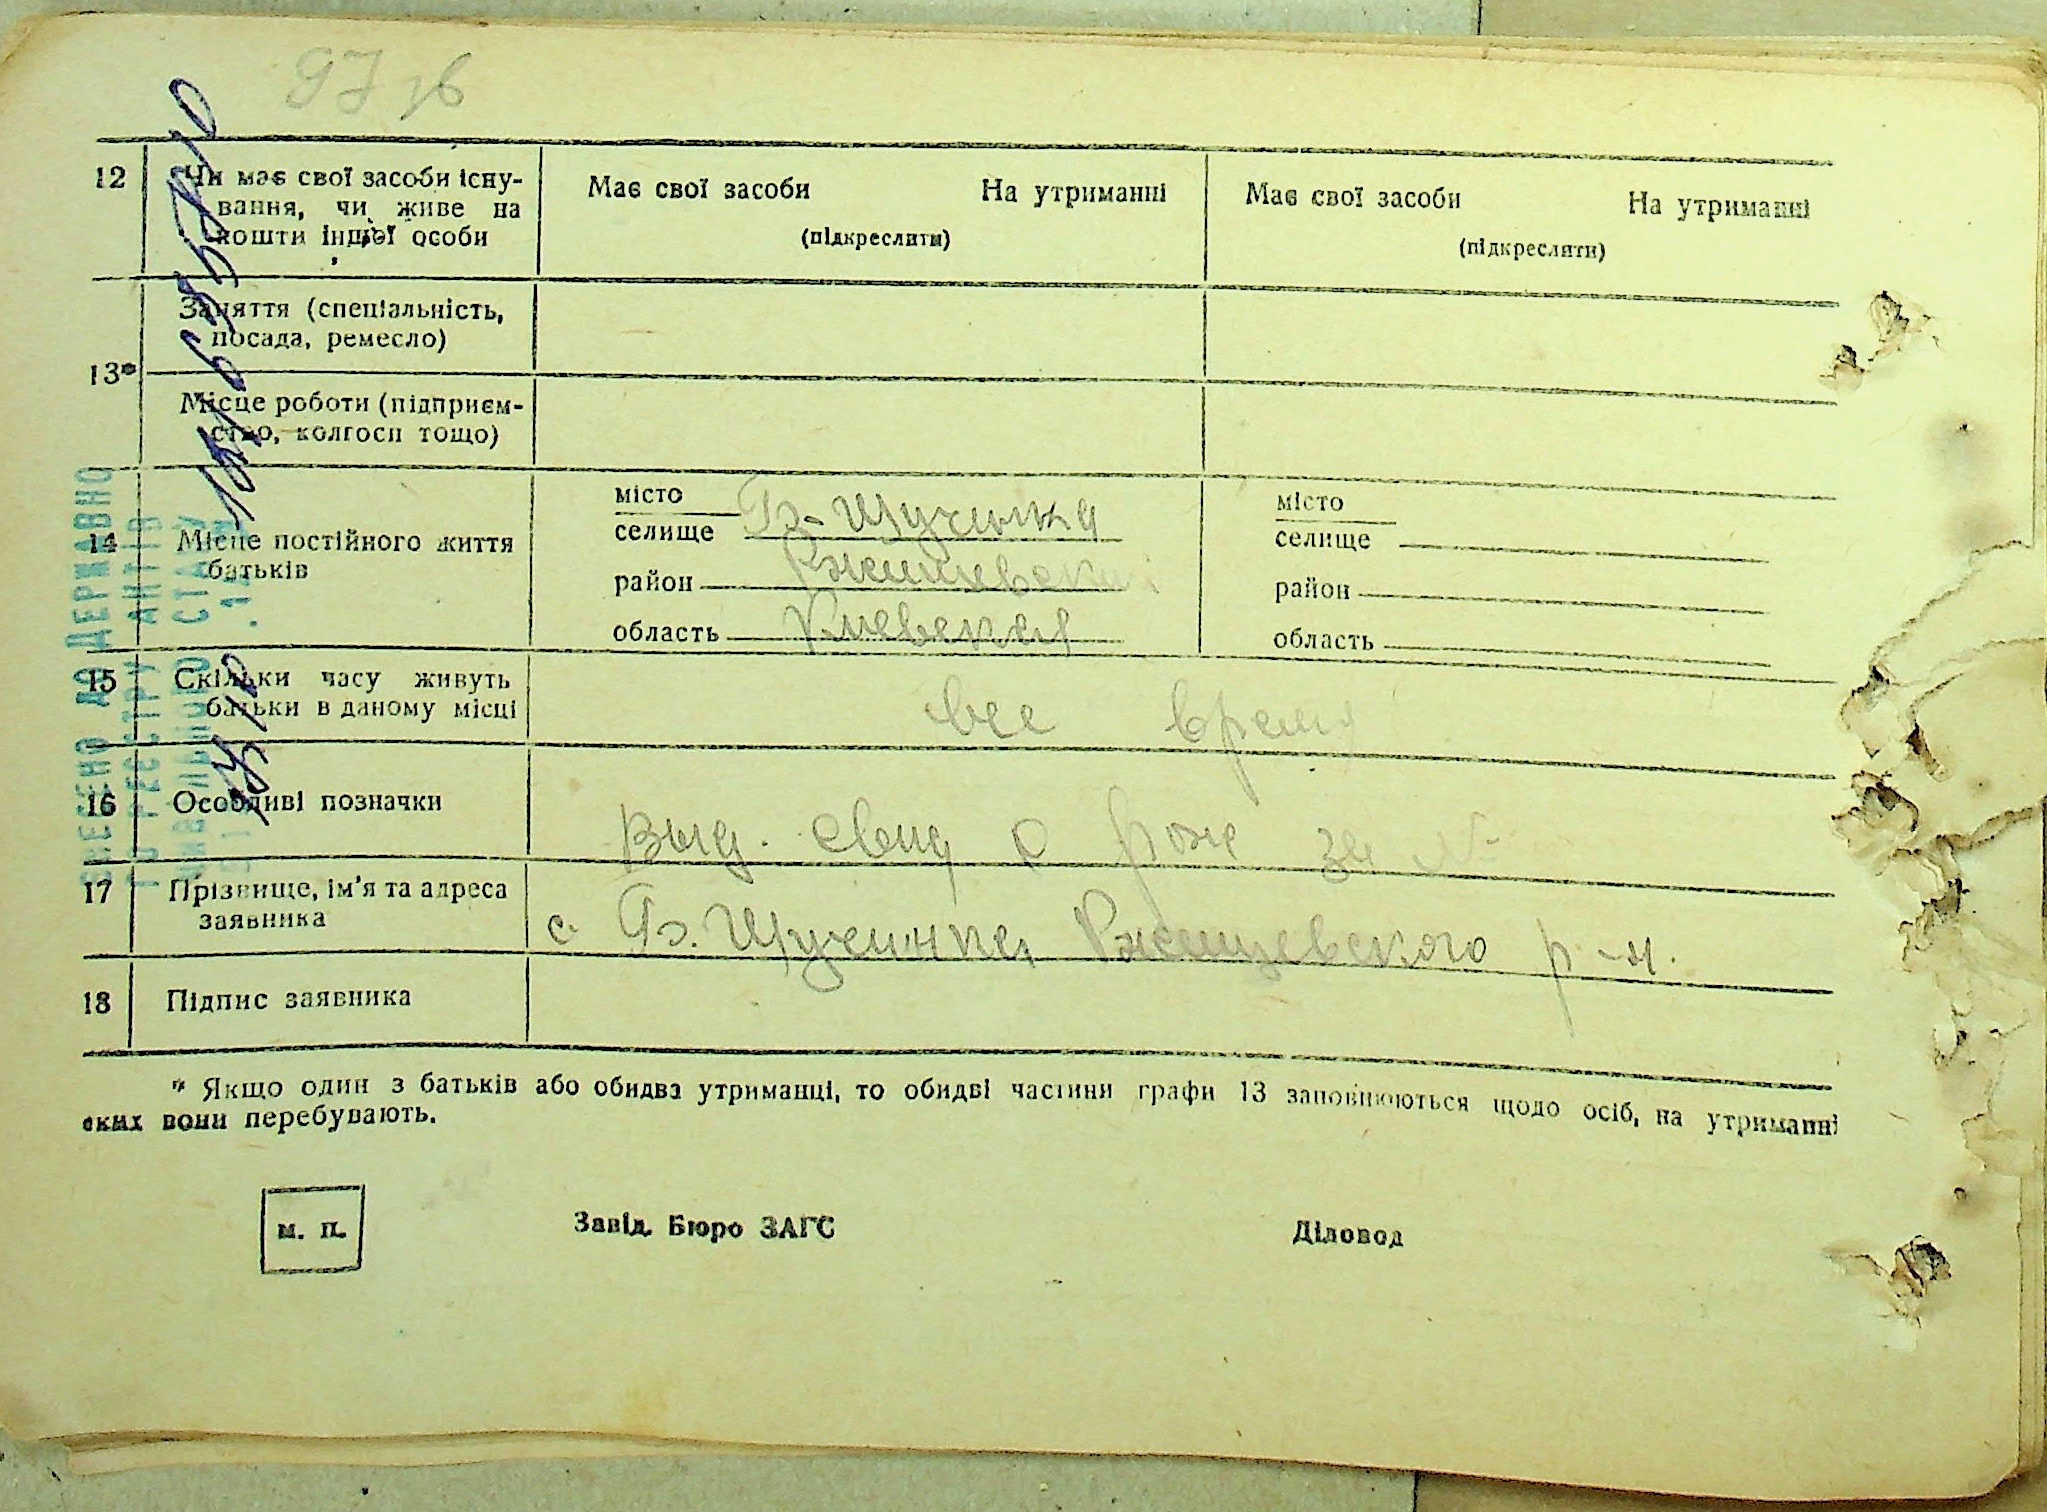 97 зв
12 Чи має свої засоби існу-
вання, чи живе на
кошти іншої особи
Має свої засоби На утриманні
(підкреслити)
Має свої засоби На утриманні
(підкреслити)
13* Заняття (спеціальність,
посада, ремесло)
Місце роботи (підприєм-
ство, колгосп тощо)
14 Місце постійного життя
батьків
місто
селище Гр-Щучинка
район Ржищевский
область Киевская
місто
селище
район
область
15 Скільки часу живуть
батьки в даному місці
все время
16 Особливі позначки
Выд. свид о рож за №
17 Прізвище, ім'я та адреса
заявника
с. Щучинка, Ржищевского р-н.
18 Підпис заявника
* Якщо один з батьків або обидва утриманці, то обидві частини графи 13 заповнюються щодо осіб, на утриманні
яких вони перебувають.
м. п.
Завід. Бюро ЗАГС
Діловод
ВНЕСЕНО ДО ДЕРЖАВНО
ГО РЕЄСТРУ АКТІВ
ЦИВІЛЬНОГО СТАНУ